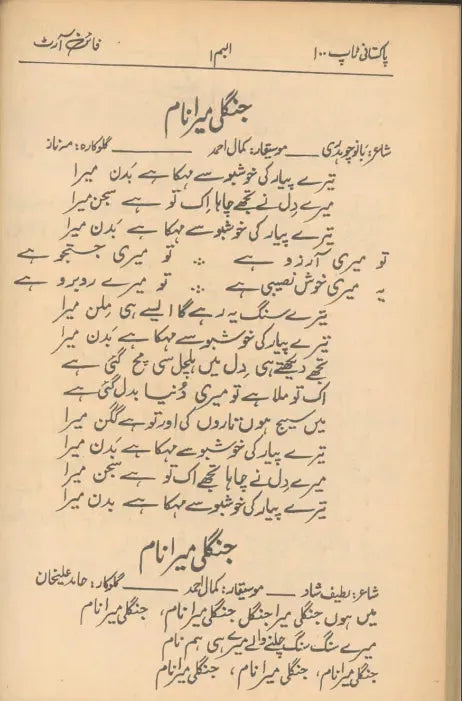 پاکستانی ٹاپ ۱۰۰ البم ۱ فائن آرٹ
جنگلی میرا نام
شاعر: بانو چوہدری — موسیقار: کمال احمد — گلوکارہ: مہ ناز
تیرے پیار کی خوشبو سے مہکا ہے بدن میرا
میرے دِل نے تجھے چاہا اِک تو ہے سجن میرا
تیرے پیار کی خوشبو سے مہکا ہے بدن میرا
تو میری آرزو ہے ∴ تو میری جستجو ہے
یہ میری خوش نصیبی ہے ∴ تو میرے روبرو ہے
تیرے سنگ یہ رہے گا ایسے ہی مِلن میرا
تیرے پیار کی خوشبو سے مہکا ہے بدن میرا
تجھے دیکھتے ہی دِل میں ہلچل سی مچ گئی ہے
اک تو ملا ہے تو میری دُنیا بدل گئی ہے
میں سیج ہوں تاروں کی اور تو ہے گگن میرا
تیرے پیار کی خوشبو سے مہکا ہے بَدن میرا
میرے دِل نے چاہا تجھے اک تو ہے سجن میرا
تیرے پیار کی خوشبو سے مہکا ہے بدن میرا
جنگلی میرا نام
شاعر: لطیف شاد — موسیقار: کمال احمد — گلوکار: حامد علیخان
میں ہوں جنگلی میرا جنگل جنگلی میرا نام، جنگلی میرا نام
میرے سنگ سنگ چلنے والے میرے ہی ہم نام
جنگلی میرا نام، جنگلی میرا نام، جنگلی میرا نام